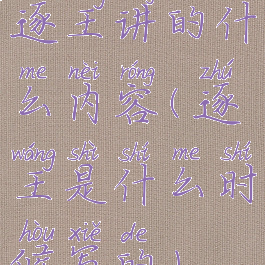 逐王讲的什
me nèi róng zhú
么内容(逐
wáng shì shí me shí
王是什么时
hòu xiě de
候写的)